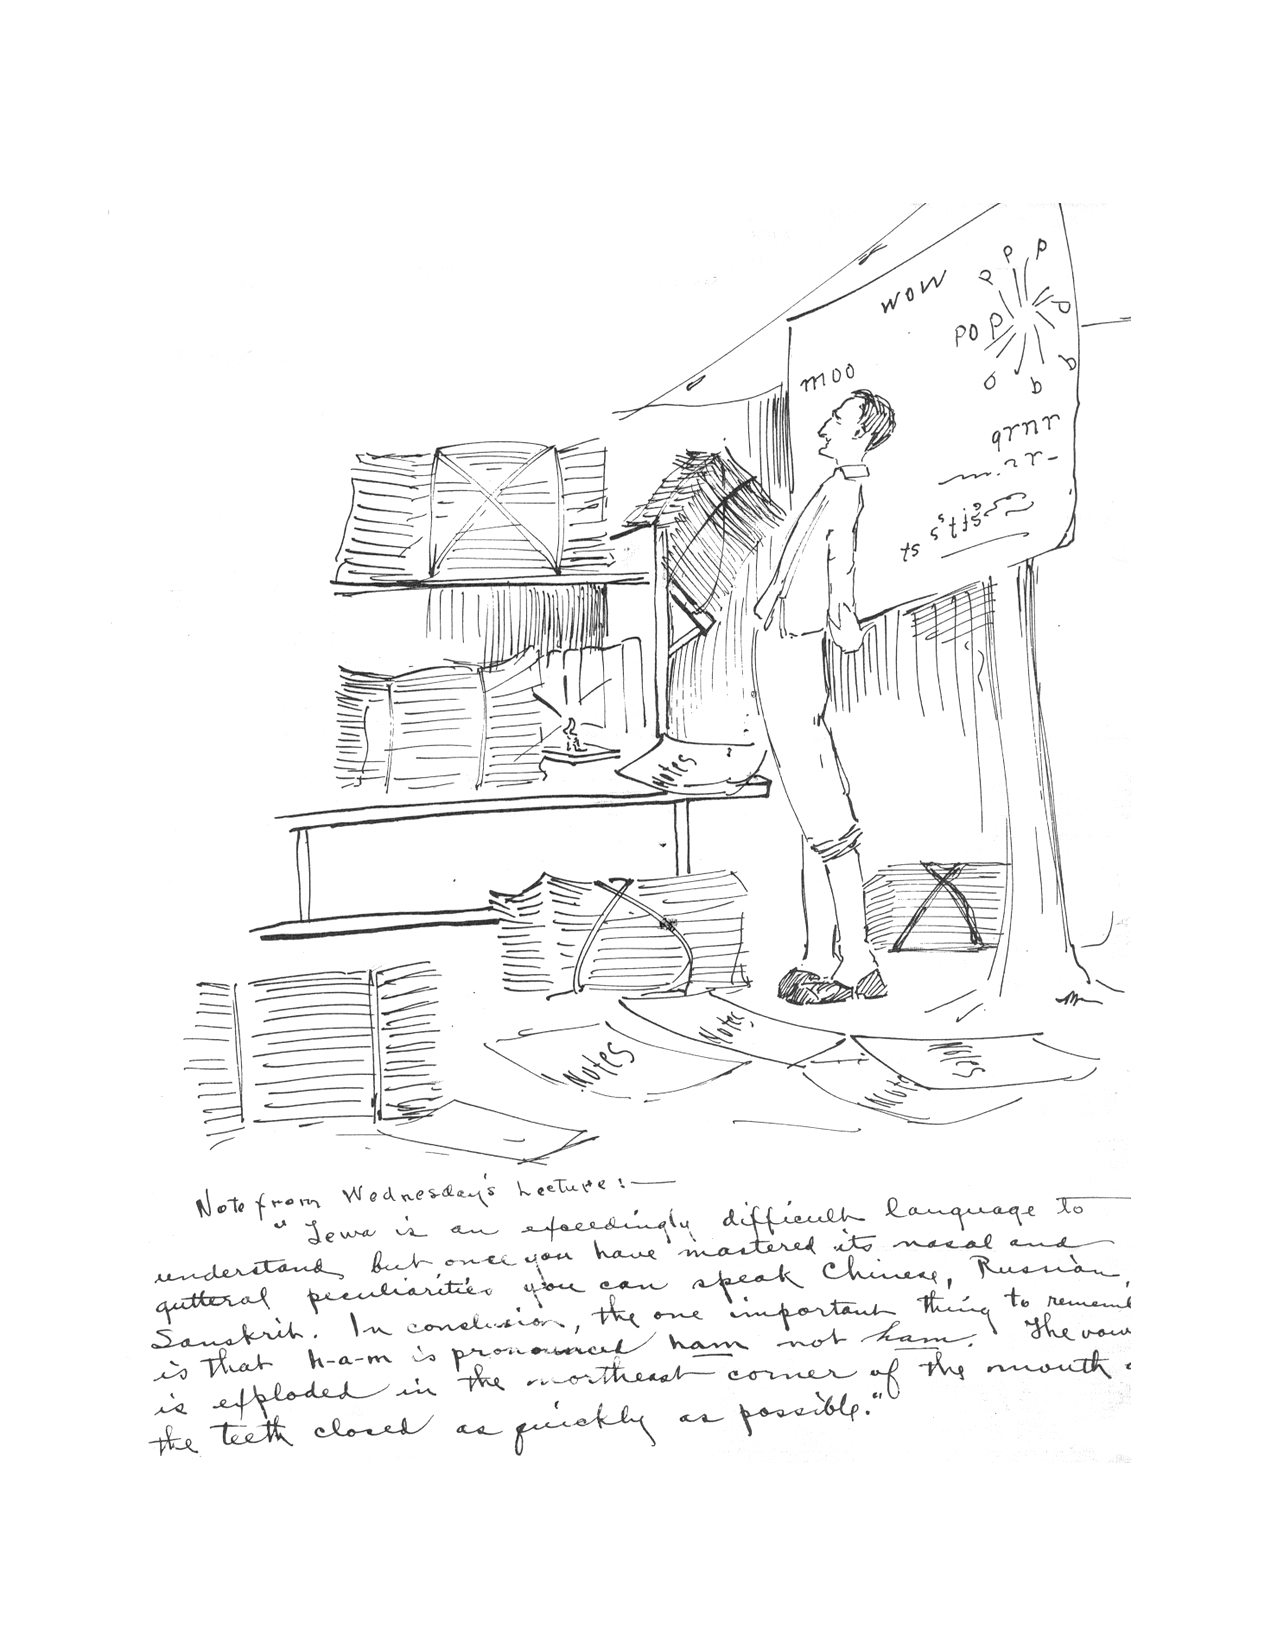 WOW
POP
P
P
P
moo
Notes
Notes
Notes
Notes
Notes
Note from Wednesday's Lecture:—
"Tewa is an exceedingly difficult language to
understand, but once you have mastered its nasal and
gutteral peculiarities you can speak Chinese, Russian,
Sanskrit. In conclusion, the one important thing to
is that h-a-m is pronounced ham not ham. The
is exploded in the northeast corner of the mouth
the teeth closed as quickly as possible."